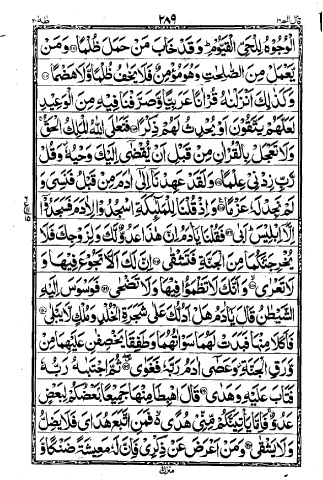 قال الم ١٦ ٢٨٩ طٰهٰ ٢٠
الْوُجُوْهُ لِلْحَیِّ الْقَیُّوْمِ ؕ وَقَدْ خَابَ مَنْ حَمَلَ ظُلْمًا ۝ وَمَنْ
یَّعْمَلْ مِنَ الصّٰلِحٰتِ وَهُوَ مُؤْمِنٌ فَلَا یَخٰفُ ظُلْمًا وَّلَا هَضْمًا ۝
وَكَذٰلِكَ اَنْزَلْنٰهُ قُرْاٰنًا عَرَبِیًّا وَّصَرَّفْنَا فِیْهِ مِنَ الْوَعِیْدِ
لَعَلَّهُمْ یَتَّقُوْنَ اَوْ یُحْدِثُ لَهُمْ ذِكْرًا ۝ فَتَعٰلَی اللّٰهُ الْمَلِكُ الْحَقُّ ۚ
وَلَا تَعْجَلْ بِالْقُرْاٰنِ مِنْ قَبْلِ اَنْ یُّقْضٰۤی اِلَیْكَ وَحْیُهٗ ؗ وَقُلْ
رَّبِّ زِدْنِیْ عِلْمًا ۝ وَلَقَدْ عَهِدْنَاۤ اِلٰۤی اٰدَمَ مِنْ قَبْلُ فَنَسِیَ وَ
لَمْ نَجِدْ لَهٗ عَزْمًا ۝ وَاِذْ قُلْنَا لِلْمَلٰٓىِٕكَةِ اسْجُدُوْا لِاٰدَمَ فَسَجَدُوْۤا
اِلَّاۤ اِبْلِیْسَ ؕ اَبٰی ۝ فَقُلْنَا یٰۤاٰدَمُ اِنَّ هٰذَا عَدُوٌّ لَّكَ وَلِزَوْجِكَ فَلَا
یُخْرِجَنَّكُمَا مِنَ الْجَنَّةِ فَتَشْقٰی ۝ اِنَّ لَكَ اَلَّا تَجُوْعَ فِیْهَا وَ
لَا تَعْرٰی ۝ وَاَنَّكَ لَا تَظْمَؤُا فِیْهَا وَلَا تَضْحٰی ۝ فَوَسْوَسَ اِلَیْهِ
الشَّیْطٰنُ قَالَ یٰۤاٰدَمُ هَلْ اَدُلُّكَ عَلٰی شَجَرَةِ الْخُلْدِ وَمُلْكٍ لَّا یَبْلٰی ۝
فَاَكَلَا مِنْهَا فَبَدَتْ لَهُمَا سَوْاٰتُهُمَا وَطَفِقَا یَخْصِفٰنِ عَلَیْهِمَا مِنْ
وَّرَقِ الْجَنَّةِ ؗ وَعَصٰۤی اٰدَمُ رَبَّهٗ فَغَوٰی ۝ ثُمَّ اجْتَبٰهُ رَبُّهٗ
فَتَابَ عَلَیْهِ وَهَدٰی ۝ قَالَ اهْبِطَا مِنْهَا جَمِیْعًۢا بَعْضُكُمْ لِبَعْضٍ
عَدُوٌّ ۚ فَاِمَّا یَاْتِیَنَّكُمْ مِّنِّیْ هُدًی ۙ فَمَنِ اتَّبَعَ هُدَایَ فَلَا یَضِلُّ
وَلَا یَشْقٰی ۝ وَمَنْ اَعْرَضَ عَنْ ذِكْرِیْ فَاِنَّ لَهٗ مَعِیْشَةً ضَنْكًا وَّ